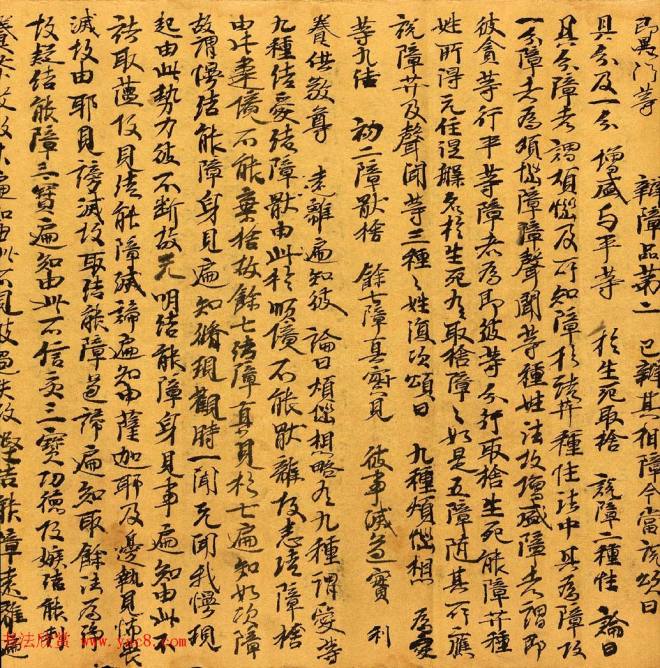 即異門等 辯障品第二 已辯其相障今當說頌曰
具分及一分 增盛与平等 於生死取捨 說障二種性 論曰
具分障者謂煩惱及所知障於諸菩種性法中具為障故
一分障者為煩惱障障聲聞等種姓法故增盛障者謂即
彼貪等行平等障者為即彼等分行取捨生死能障菩種
姓所得无住涅槃名於生死有取捨障〻如是五障随其所應
說障菩及聲聞等三種〻姓復次頌曰 九種煩惱相 為愛
等九结 初二障猒捨 餘七障真實見 彼事滅道寶 利
養供敬等 遠離遍知彼 論曰煩惱相略有九種謂愛等
九種结愛结障猒由此於順境不能猒離故恚结障捨
由此違境不能棄捨故餘七结障真見於七遍知如次障
故謂慢结能障身見遍知脩現觀時一聞无聞我慢現
起由此勢力彼不断故无明结能障身見事遍知由此
諸取蕴故見结能障滅諦遍知由薩伽耶及邊執見怖畏
滅故由耶見謗滅故取结能障道諦遍知取餘法為
故疑结能障三寶遍知由此不信受三寶功德故嫉结能
书法欣赏 www.yac8.com